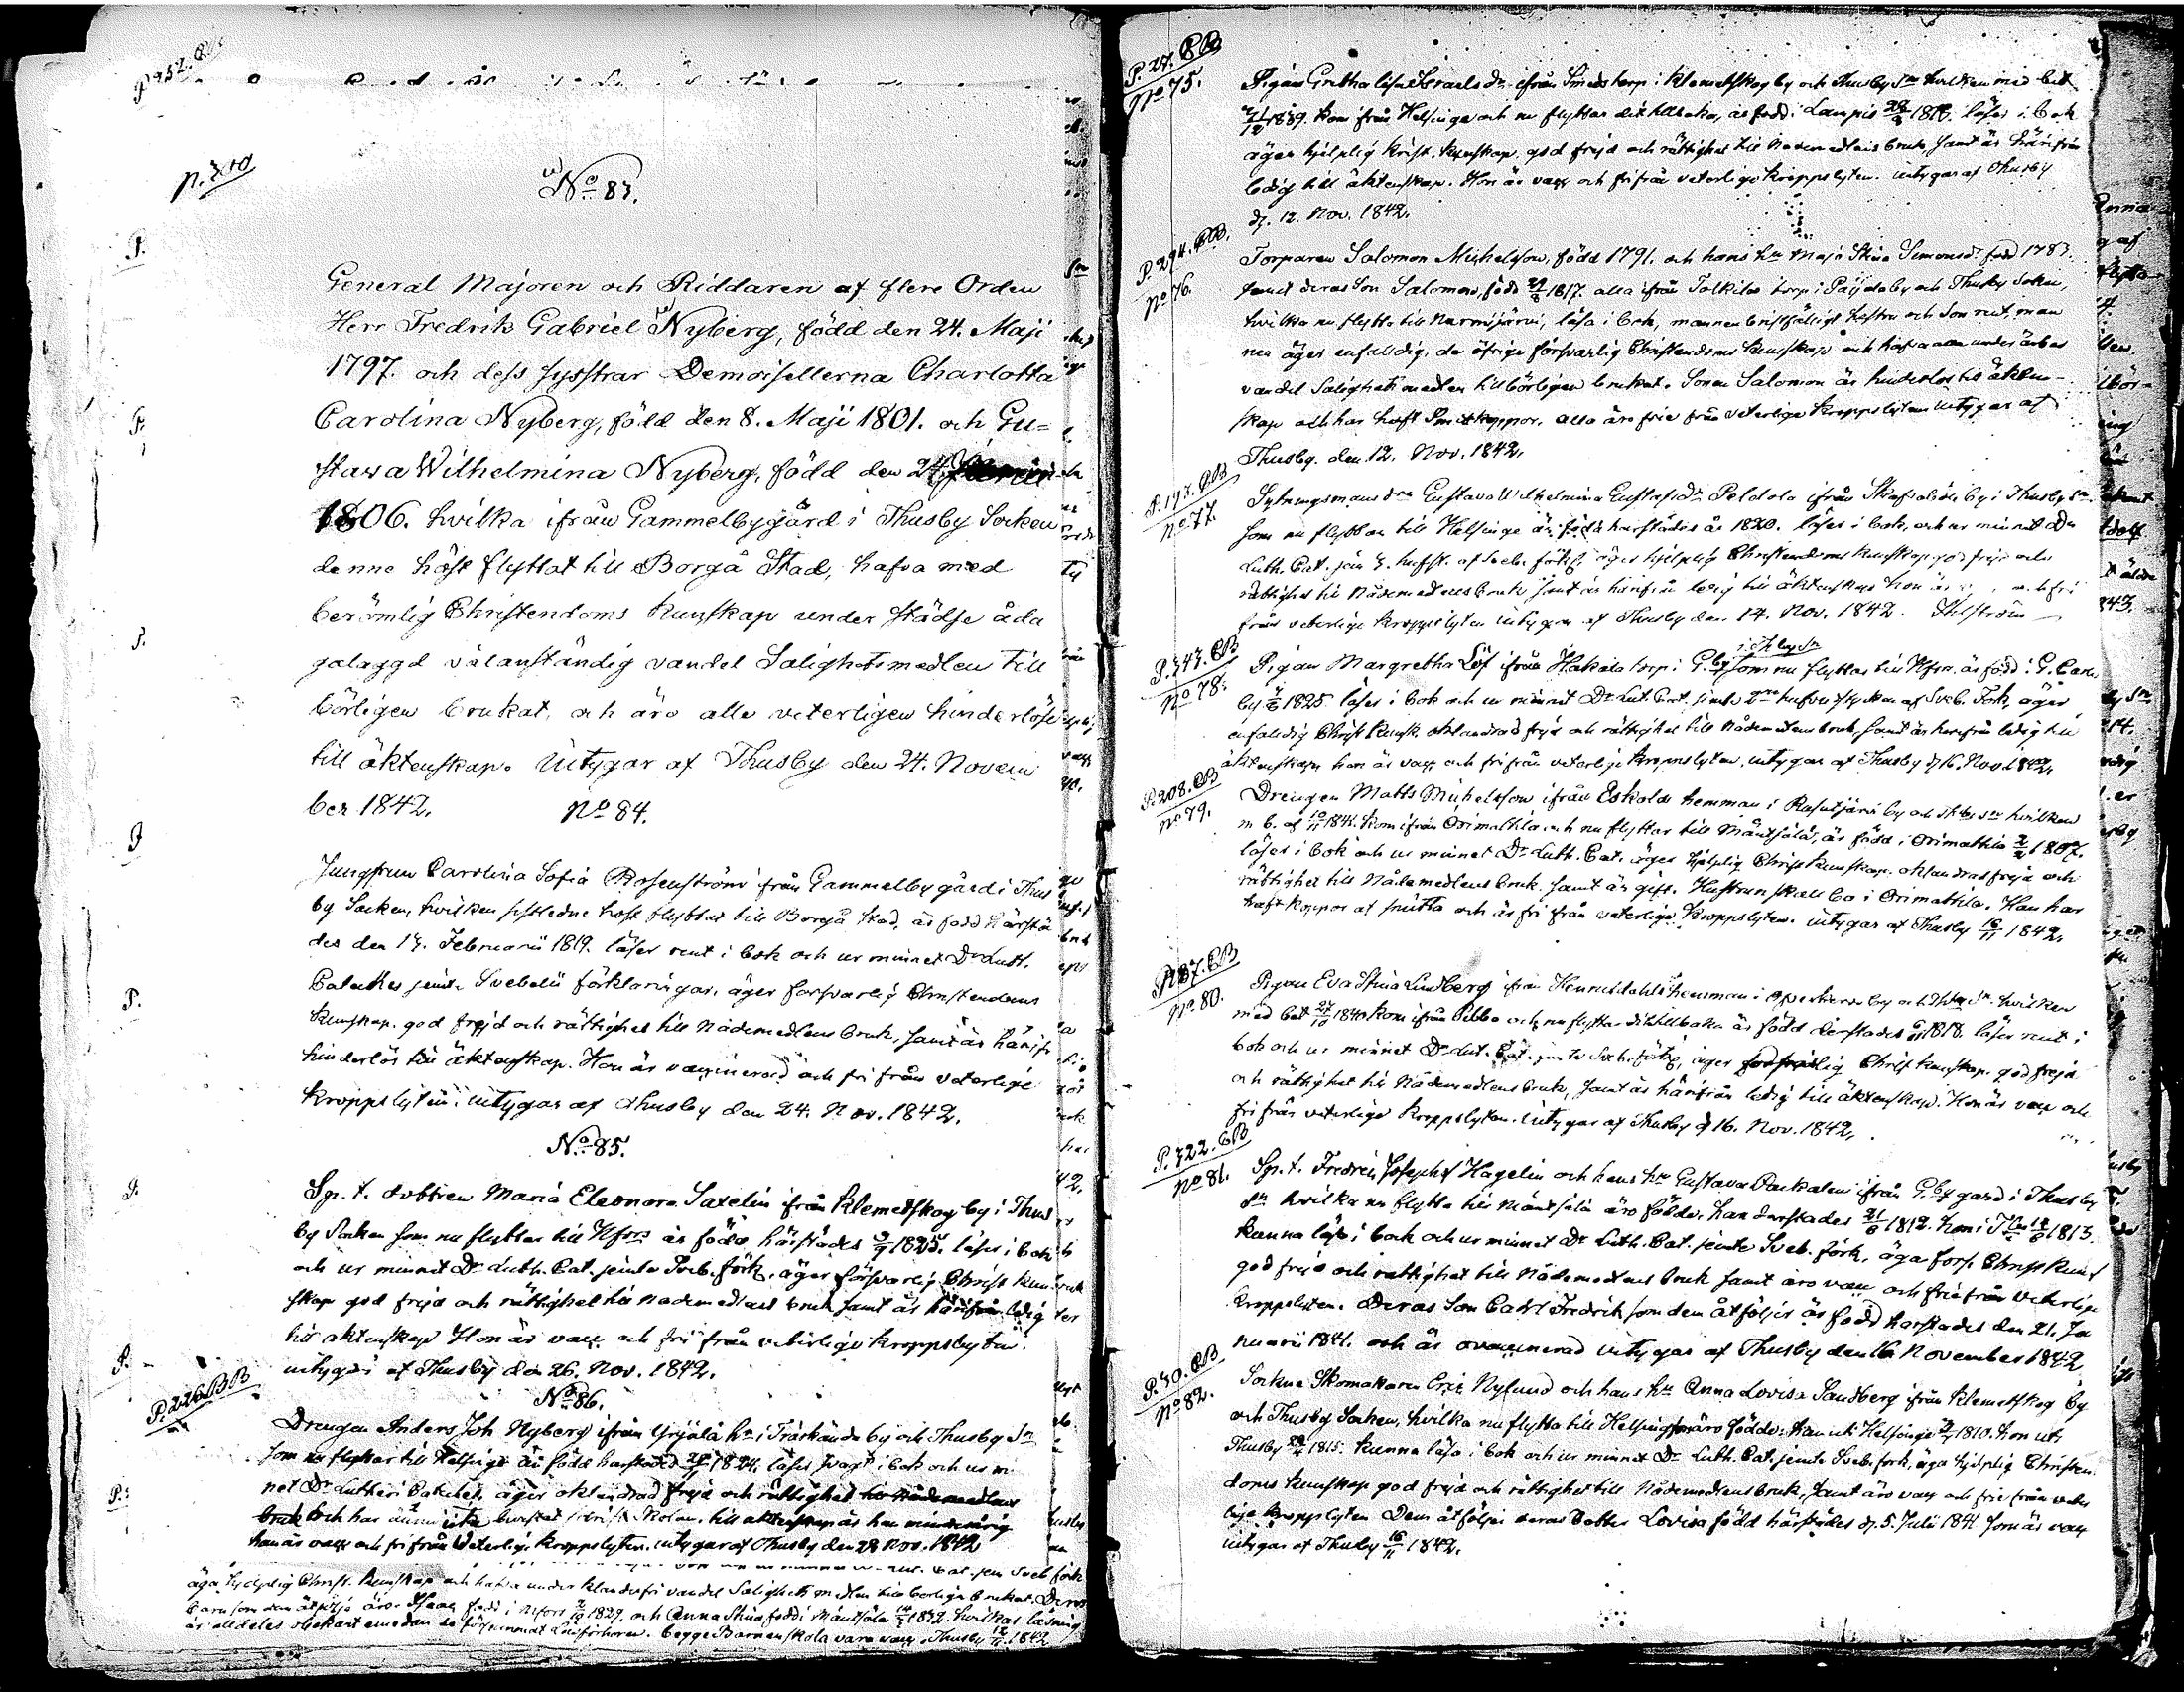 P. 252. CB
p. 310
No 83.
General Majoren och Riddaren af flere Orden
Herr Fredrik Gabriel Nyberg, född den 24. Maji
1797. och dess systrar Demoisellerna Charlotta
Carolina Nyberg, född den 8. Maji 1801. och Gu=
stava Wilhelmina Nyberg, född den 24.
1806. hvilka ifrån Gammelbygård i Thusby Socken
denne höst flyttat till Borgå Stad, hafva med
berömlig Christendoms kunskap under städse åda
galaggd välanständig vandel Salighetsmedlen till
börligen brukat, och äro alla veterligen hinderlöse
till äktenskap. Intygar af Thusby den 24. Novem
ber 1842.
No 84.
Jungfrun Carolina Sofia Rosenström från Gammelby gård i Thus
by Socken, hvilken sistledne höst flyttat till Borgå Stad, är född härstä
des den 14. Februarii 1819. läser rent i bok och ur minnet Dr Luth.
Cateches jemte Svebelii förklaringar, äger försvarlig Christendoms
kunskap, god frejd och rättighet till Nådemedlens bruk, samt är härifr
hinderlös till äktenskap. Hon är vaccinerad och fri från veterlige
kroppslyten. intygar af Thusby den 24. Nov. 1842.
No 85.
Sp. t. dottren Maria Eleonora Saxelin ifrån Klemetskog by i Thus
by Socken som nu flyttar till Hfors är född härstädes 1825. läser i bok
och ur minnet Dr Luth. Cat. jemte Sveb. förk. äger försvarlig Christ kun
skap god frejd och rättighet till Nådemedlens bruk samt är härifrån ledig
till äktenskap Hon är vacc och fri från veterlige kroppslyten.
intygas af Thusby den 26. Nov. 1842.
P. 226 BB
No 86.
Drengen Anders Joh Nyberg ifrån Gryålå hn i Träskända by och Thusby Sn
som nu flyttar till Helsinge är född härstädes 1824. läser svagt i bok och ur min
net Dr Lutheri Cateches, äger oklandrad frejd och rättighet till Nådemedlens
bruk och har till äktenskap är han
han är vacc och fri från Veterlige kroppslyten. intygar af Thusby den 28 Nov. 1842
äga hjelplig Christ. kunskap och hafva under klanderfri vandel Salighets medlen till börligen brukat. Deras
barn som dem åtfölja äro: född i Hfors 1829. och Anna Stina född i Mäntsälä 1832. hvilkas läsning
är alldeles obekant emedan de försummat Läsförhören. begge Barnen skola vara vacc. Thusby 1842
P. 27. CB
No 75.
Pigan Gretha Lisa Israelsdr ifrån Smeds torp i Klemetskog by och Thusby Sn hvilken med bet
1839. kom från Helsinge och nu flyttar dit tillbaka, är född i Lampis 1816. läser i bok
äger hjelplig Krist. kunskap, god frejd och rättighet till Nådemedlens bruk, samt är härifrån
ledig till äktenskap. Hon är vacc och fri från veterlige kroppslyten. intygar af Thusby
d. 12. Nov. 1842.
P. 294. CB.
No 76.
Torparen Salomon Michelsson, född 1791. och hans hu Maja Stina Simonsdr. född 1783.
samt deras Son Salomon, född 1817. alla ifrån Tolkila torp i Paijala by och Thusby Socken,
hvilka nu flytta till Nurmijärvi, läsa i bok, mannen bristfälligt hustru och Son rent, man
nen äger enfaldig, de öfrige försvarlig Christendoms kunskap och hafva under ärbar
vandel Salighetsmedlen tillbörligen brukat. Sonen Salomon är hinderlös till äkten-
skap och har haft Smittkoppor. alla äro frie från veterlige kroppslyten intygar af
Thusby den 12. Nov. 1842.
P. 193. CB
No 77.
Sytningsmans drn Gustava Wilhelmina Gustafsdr Peldola ifrån Skafvaböle by i Thusby Sn.
som nu flyttar till Helsinge är född härstädes år 1820. läser i bok, och ur minnet Dr
Luth. Cat. jem 3. hufst. af Sveb. förk. äger hjelplig Christendoms kunskap god frejd och
rättighet till Nådemedlens bruk samt är härifrån ledig till äktenskap hon är fri
från veterlige kroppslyten intygar af Thusby den 14. Nov. 1842.
P. 343. CB
No 78.
Pigan Margretha Löf ifrån Hakala torp i G.by i Thusby Sn som nu flyttar till Hfors. är född i G. Carl
by 1825. läser i bok och ur minnet Dr Lut. Cat. jemte 2ne hufvudstycken af Sveb. Förk, äger
enfaldig Christ kunsk. oklandrad frejd och rättighet till Nådemedlens bruk, samt är härifrån ledig till
äktenskap hon är vacc och fri från veterlige kroppslyten, intygar af Thusby d. 16. Nov. 1842.
P. 208. CB
No 79.
Drengen Matts Michelsson ifrån Eskola hemman i Rusutjärvi by och Thusby Sn hvilken
m b. af 1841. kom ifrån Orimattila och nu flyttar till Mäntsälä, är född i Orimattila 1807.
läser i bok och ur minnet Dr Luth. Cat. äger hjelplig Christ kunskap. oklandrad frejd och
rättighet till Nådemedlens bruk. samt är gift. Hustrun skall bo i Orimattila. Han har
haft koppor af smitta och är fri från veterlige kroppslyten. intygar af Thusby 16/11 1842.
P. 87. CB
No 80.
Pigan Eva Stina Lindberg ifrån Hemman i by och Thusby Sn. hvilken
med bet 1840 kom ifrån Sibbo och nu flyttar dit tillbaka är född därstädes år 1818. läser rent i
bok och ur minnet Dr Lut. Cat. jemte Sveb. förk, äger Christ kunskap. god frejd
och rättighet till Nådemedlens bruk, samt är härifrån ledig till äktenskap. Hon är vacc och
fri från veterlige kroppslyten. intygar af Thusby d. 16. Nov. 1842.
P. 322. CB
No 81.
Sp. t. Fredric Josephs Hagelin och hans hu Gustava Packalen ifrån G.by gård i Thusby
Sn hvilka nu flytta till Mäntsälä äro födde, han därstädes 1812. hon i 1813.
kunna läsa i bok och ur minnet Dr Luth. Cat. jemte Sveb. förk, äga förs. Christ kuns
god frejd och rättighet till Nådemedlens bruk samt äro vacc och frie från veterlige
kroppslyten. Deras Son Carl Fredrik som dem åtföljer är född härstädes den 21. Ja
nuarii 1841. och är ovaccinerad intygar af Thusby den 16 November 1842
P. 30. CB
No 82.
Sockne Skomakaren Eric Nylund och hans hu Anna Lovisa Sandberg ifrån Klemetskog by
och Thusby Socken, hvilka nu flytta till Helsingfors äro födde: han uti Helsinge 1810. hon uti
Thusby 1815. kunna läsa i bok och ur minnet Dr Luth. Cat. jemte Sveb. förk, äga hjelplig Christen
doms kunskap god frejd och rättighet till Nådemedlens bruk, samt äro vacc och frie från veter
lige kroppslyten Dem åtföljer deras Dotter Lovisa född härstädes d. 5. Julii 1841 som är vacc
intygar af Thusby 16/11 1842.